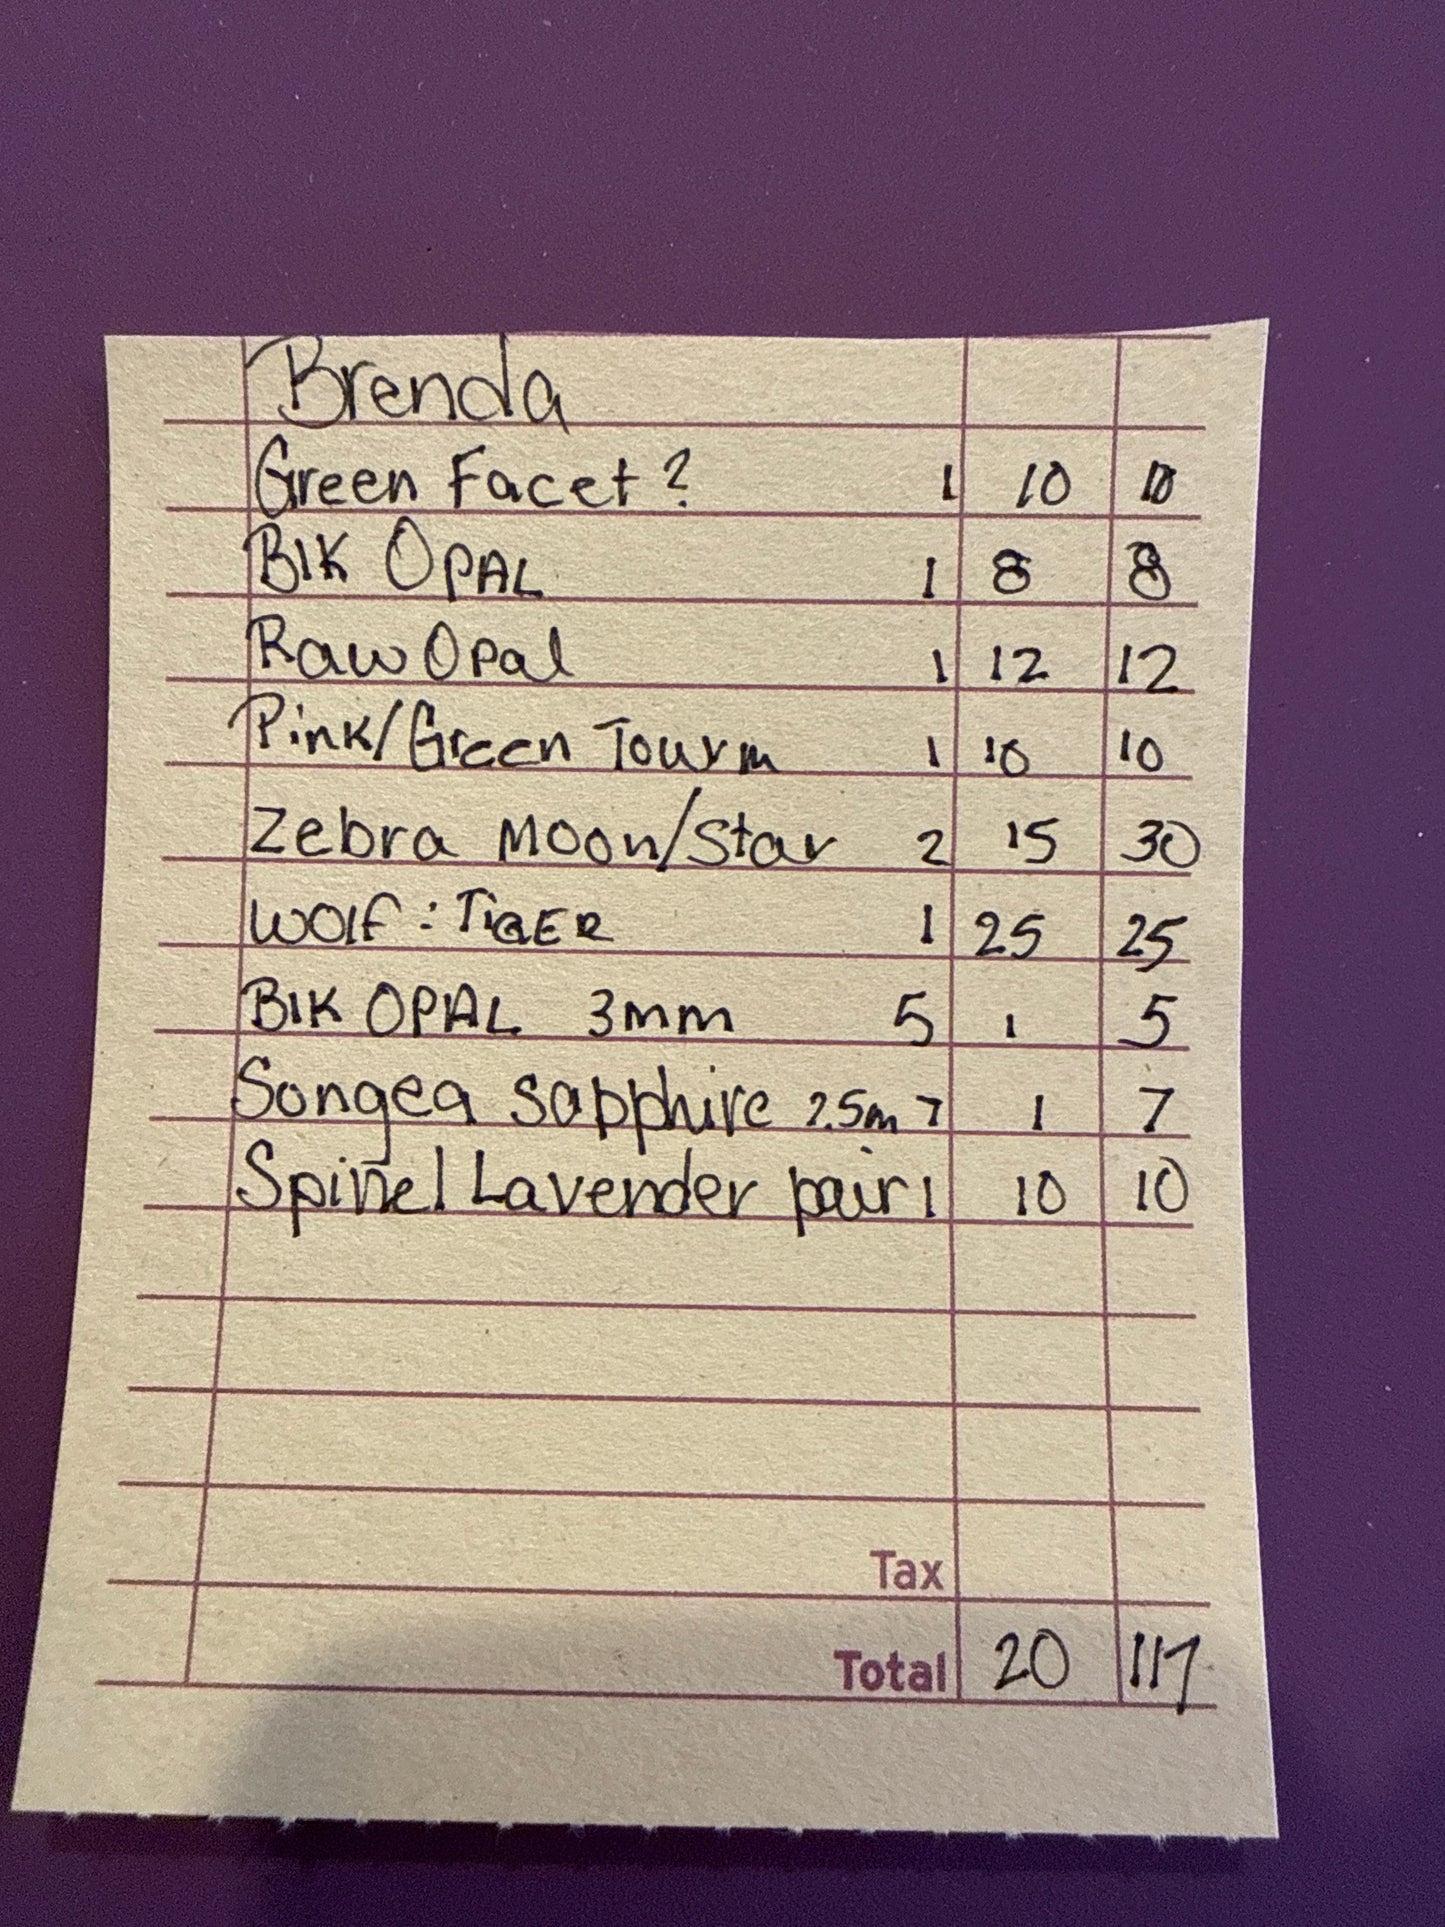 Brenda
Green Facet? 1 10 10
Blk OPAL 1 8 8
Raw Opal 1 12 12
Pink/Green Tourm 1 10 10
Zebra Moon/Star 2 15 30
Wolf: TIGER 1 25 25
Blk OPAL 3mm 5 1 5
Songea Sapphire 2.5m 7 1 7
Spinel Lavender pair 1 10 10
Tax
Total 20 117